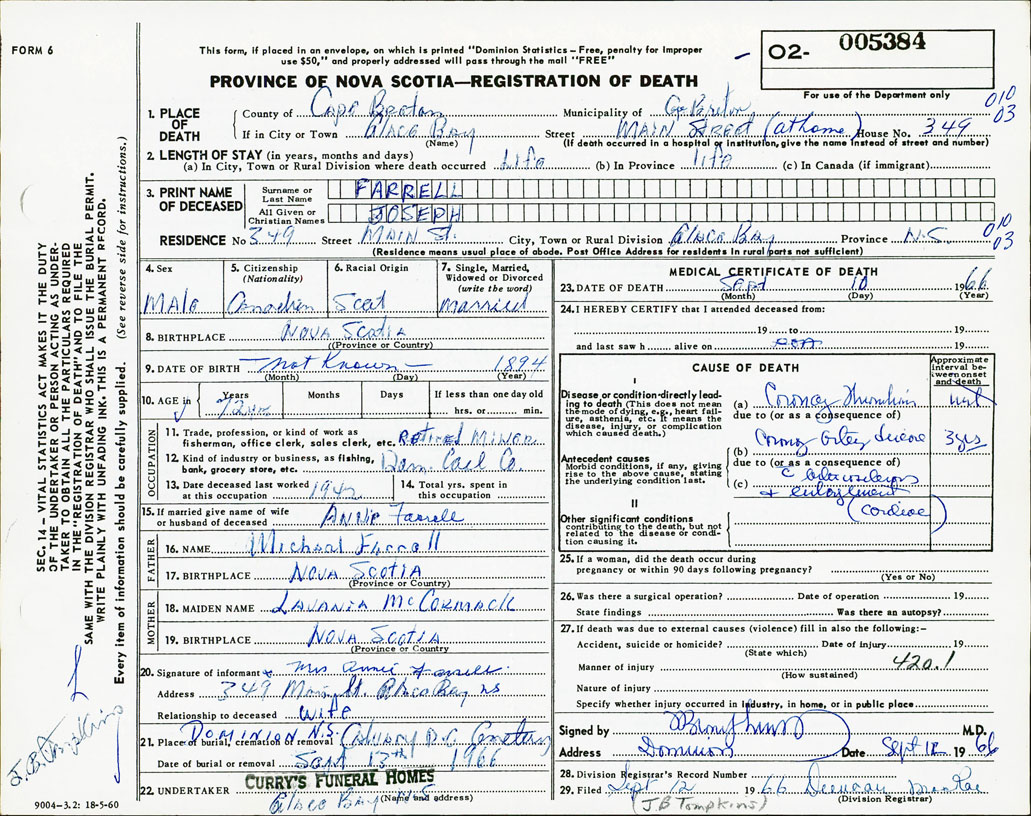 FORM 6
This form, if placed in an envelope, on which is printed "Dominion Statistics – Free, penalty for improper
use $50," and properly addressed will pass through the mail "FREE"
O2- 005384
For use of the Department only
PROVINCE OF NOVA SCOTIA—REGISTRATION OF DEATH
010
03
1. PLACE OF DEATH
County of Cape Breton Municipality of C. Breton
If in City or Town Glace Bay Street MAIN STREET (at home) House No. 349
(Name) (If death occurred in a hospital or institution, give the name instead of street and number)
2. LENGTH OF STAY (in years, months and days)
(a) In City, Town or Rural Division where death occurred Life (b) In Province life (c) In Canada (if immigrant)
3. PRINT NAME OF DECEASED
Surname or Last Name FARRELL
All Given or Christian Names JOSEPH
RESIDENCE No 349 Street MAIN St. City, Town or Rural Division Glace Bay Province N.S.
010
03
(Residence means usual place of abode. Post Office Address for residents in rural parts not sufficient)
4. Sex Male
5. Citizenship (Nationality) Canadian
6. Racial Origin Scot
7. Single, Married, Widowed or Divorced (write the word) Married
8. BIRTHPLACE NOVA SCOTIA
(Province or Country)
9. DATE OF BIRTH — Not Known — 1894
(Month) (Day) (Year)
10. AGE in Years Months Days If less than one day old
72 hrs. or min.
OCCUPATION
11. Trade, profession, or kind of work as
fisherman, office clerk, sales clerk, etc. Retired Miner
12. Kind of industry or business, as fishing,
bank, grocery store, etc. Dom. Coal Co.
13. Date deceased last worked
at this occupation
14. Total yrs. spent in
this occupation
15. If married give name of wife
or husband of deceased Annie Farrell
FATHER
16. NAME Michael Farrell
17. BIRTHPLACE NOVA SCOTIA
(Province or Country)
MOTHER
18. MAIDEN NAME McCORMACK
19. BIRTHPLACE NOVA SCOTIA
(Province or Country
20. Signature of informant x Mrs Annie Farrell
Address 349 Main St. Glace Bay NS
Relationship to deceased wife
DOMINION N.S.
21. Place of burial, cremation or removal Calvary R.C. Cemetery
Date of burial or removal Sept 13th 1966
22. UNDERTAKER CURRY'S FUNERAL HOMES
Glace Bay N.S.
(Name and address)
MEDICAL CERTIFICATE OF DEATH
23. DATE OF DEATH SEPT 10 1966
(Month) (Day) (Year)
24. I HEREBY CERTIFY that I attended deceased from:
19 to 19
and last saw h alive on 19
CAUSE OF DEATH
Approximate interval between onset and death
I
Disease or condition directly leading to death (This does not mean the mode of dying, e.g., heart failure, asthenia, etc. It means the disease, injury, or complication which caused death.)
(a) Coronary Thrombosis
due to (or as a consequence of)
Antecedent causes
Morbid conditions, if any, giving rise to the above cause, stating the underlying condition last.
(b) Coronary artery disease 3 yrs
due to (or as a consequence of)
(c) c arteriosclerosis
+ enlargement
(cardiac)
II
Other significant conditions
contributing to the death, but not related to the disease or condition causing it.
25. If a woman, did the death occur during
pregnancy or within 90 days following pregnancy?
(Yes or No)
26. Was there a surgical operation? Date of operation 19
State findings Was there an autopsy?
27. If death was due to external causes (violence) fill in also the following:–
Accident, suicide or homicide? Date of injury 19
(State which)
420.1
Manner of injury
(How sustained)
Nature of injury
Specify whether injury occurred in industry, in home, or in public place
Signed by M.D.
Address Dominion Date Sept 12 1966
28. Division Registrar's Record Number
29. Filed Sept 12 1966
(Division Registrar)
(J.B Tompkins)
SEC. 14 – VITAL STATISTICS ACT MAKES IT THE DUTY
OF THE UNDERTAKER OR PERSON ACTING AS UNDER-
TAKER TO OBTAIN ALL THE PARTICULARS REQUIRED
IN THE "REGISTRATION OF DEATH" AND TO FILE THE
SAME WITH THE DIVISION REGISTRAR WHO SHALL ISSUE THE BURIAL PERMIT.
WRITE PLAINLY WITH UNFADING INK. THIS IS A PERMANENT RECORD.
Every item of information should be carefully supplied. (See reverse side for instructions.)
J.B. Tompkins
9004-3.2: 18-5-60